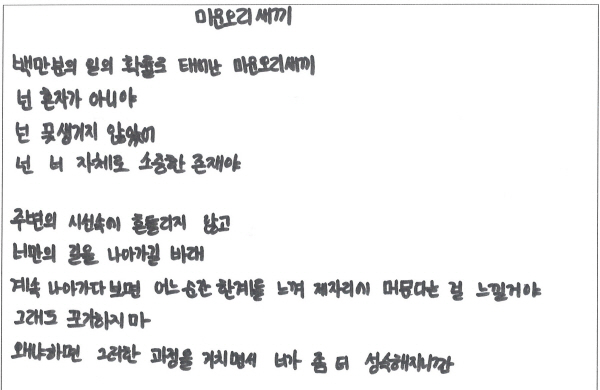 미운오리새끼
백만분의 일의 확률로 태어난 미운오리새끼
넌 혼자가 아니야
넌 못생기지 않았어
넌 너 자체로 소중한 존재야
주변의 시선속에 흔들리지 않고
너만의 길을 나아가길 바래
계속 나아가다보면 어느순간 한계를 느껴 제자리에 머문다는 걸 느낄거야
그래도 포기하지마
왜냐하면 그러한 과정을 거치면서 너가 좀 더 성숙해지니깐